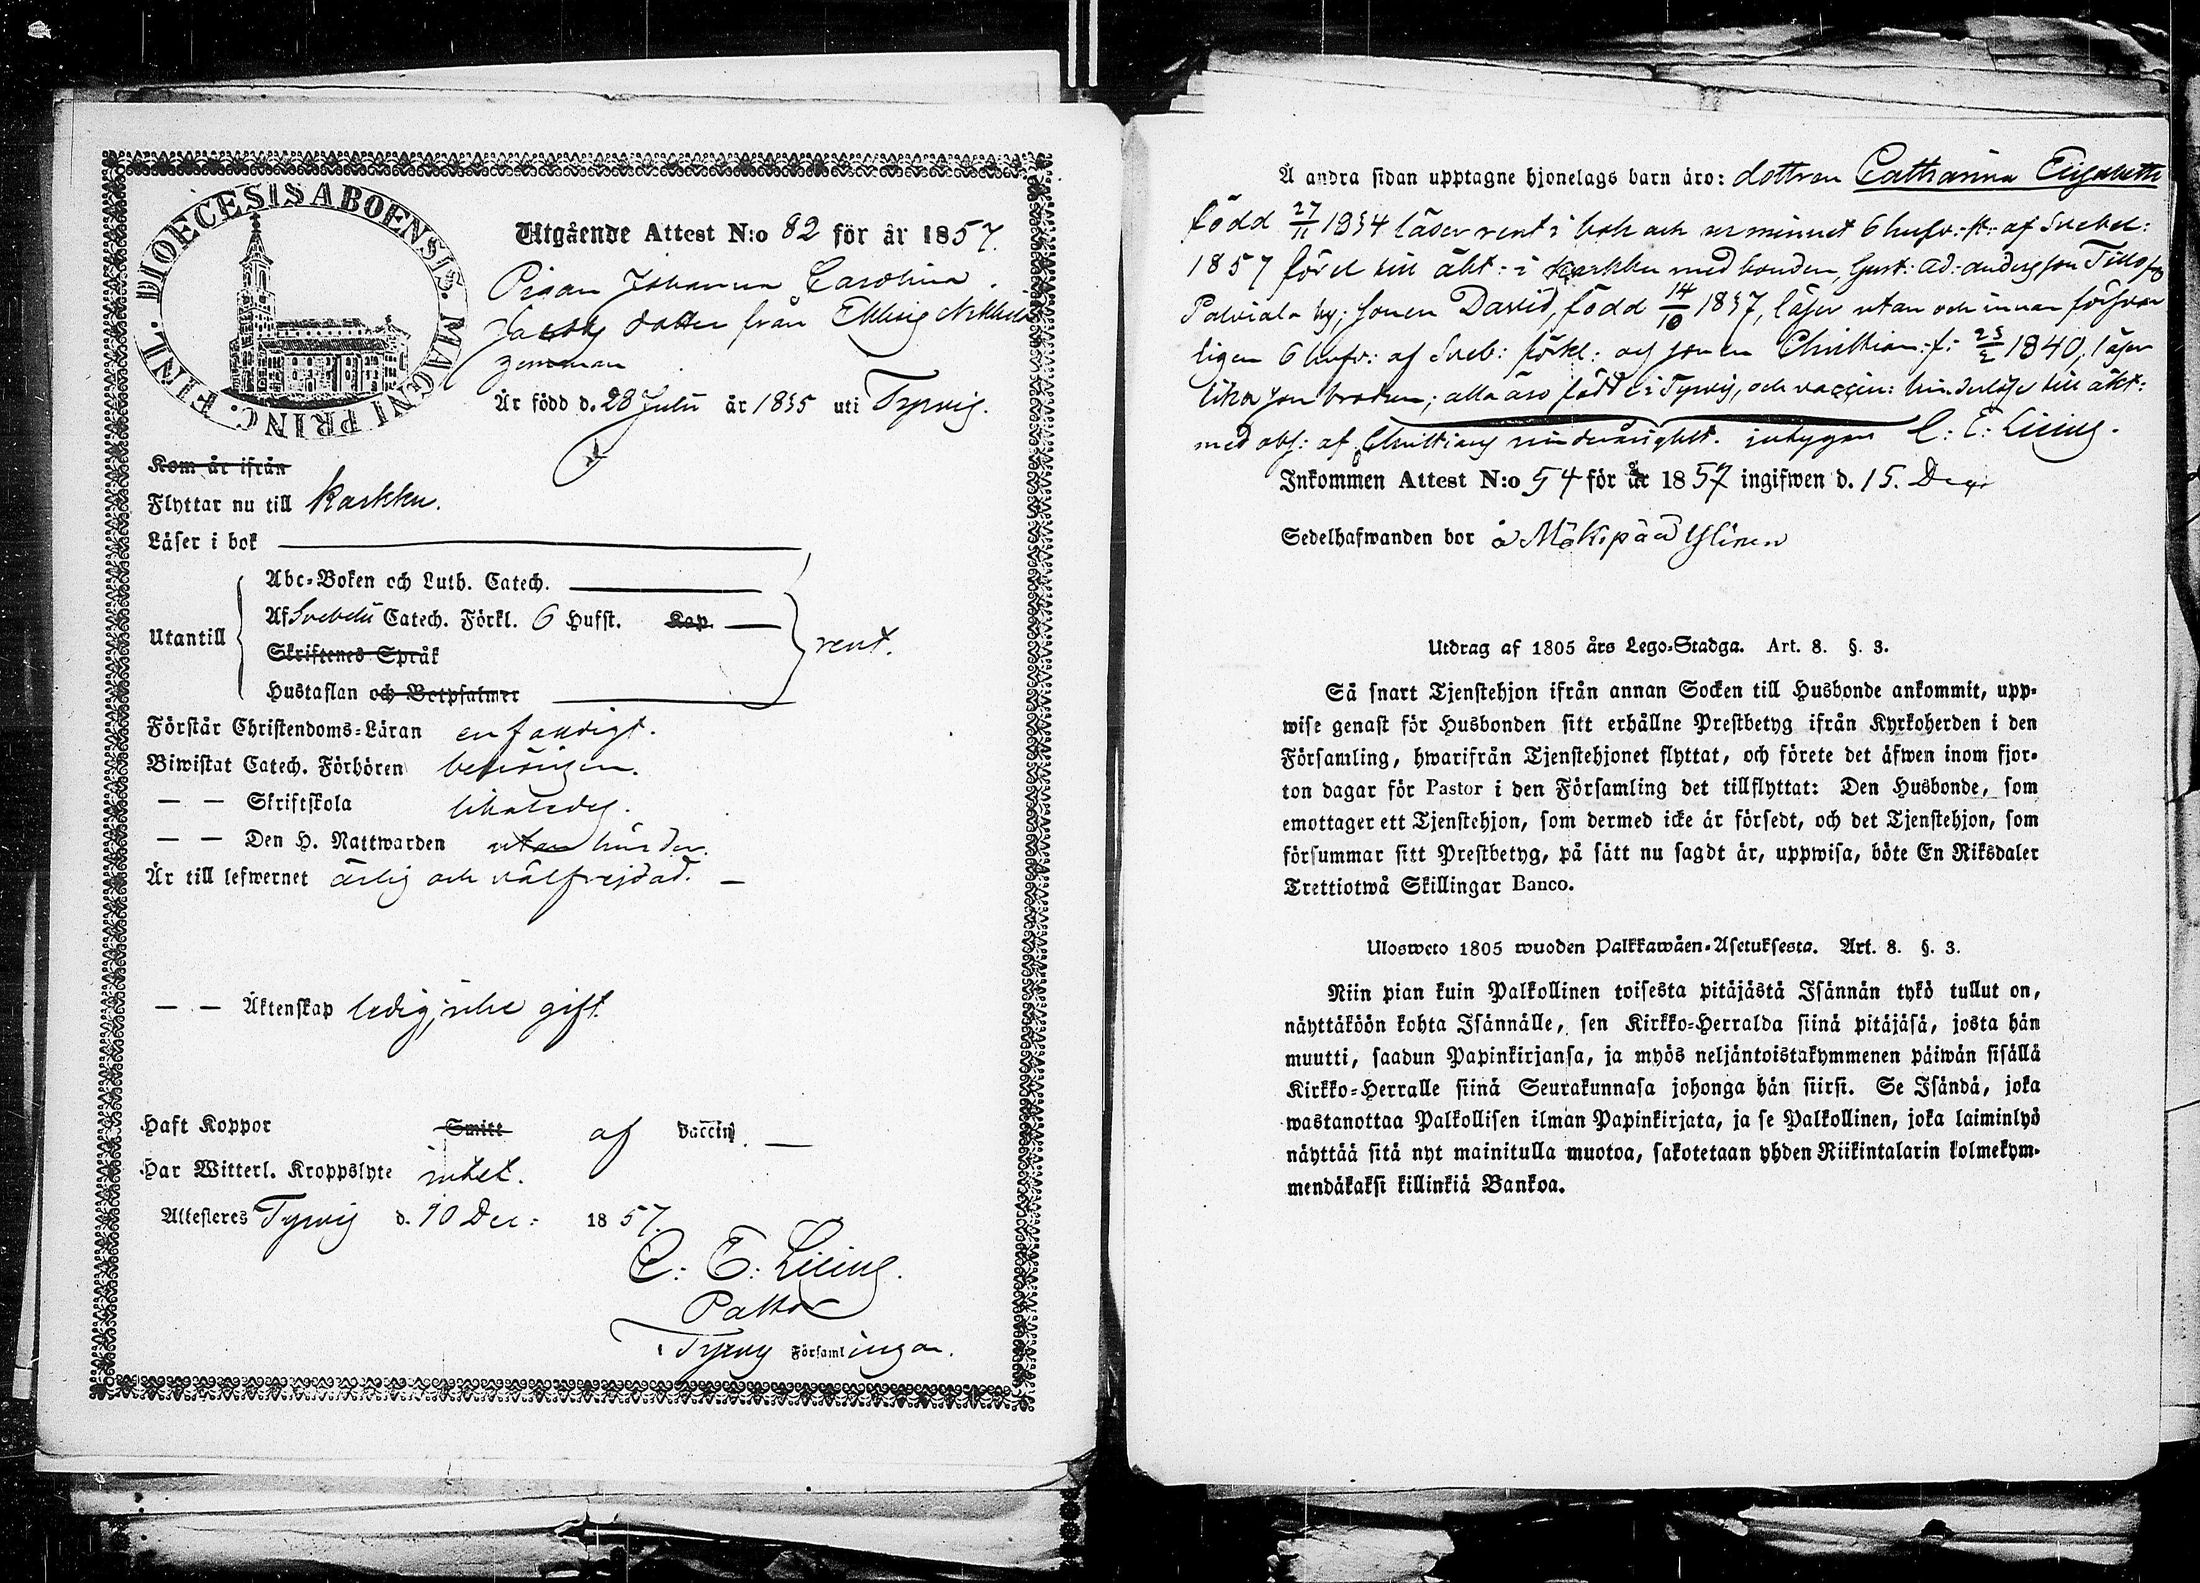 DIOECESIS ABOENSIS. MAGNI PRINC. FINL.
Utgående Attest N:o 82 för år 1857.
Pigan Johanna Carolina
Jacobs dotter från Ekkis
Är född d. 28 Julii år 1835 uti Tyrvis.
Kom år ifrån
Flyttar nu till Karkku.
Läser i bok
Utantill
Abc-Boken och Luth. Catech.
Af Svebelii Catech. Förkl. 6 Hufst. Kap.
Skriftenes Språk
Hustaflan och Botpsalmer
rent.
Förstår Christendoms-Läran enfaldigt.
Biwistat Catech. Förhören behörigen.
— — Skriftskola likaledes.
— — Den H. Nattwarden utan hinder.
Är till lefwernet ärlig och välfrejdad. —
— — Äktenskap ledig; icke gift.
Haft Koppor Smitt af vaccin. —
Har Witterl. Kroppslyte intet.
Attesteres Tyrvis d. 10 Dec: 1857.
C: E: Lilius.
Pastor
i Tyrvis Församlingar.
Å andra sidan upptagne hjonelags barn äro: dottren Catharina Elisabeth
född 27/11 1834 läser rent i bok och ur minnet 6 hufv:-st: af Svebel:
1857 förel till äkt: i Karkku med bonden, Gust: Ad: Andersson
Palviala by; sonen David, född 14/10 1837, läser utan och innan försvar
ligen 6 hufv: af Sveb: förkl: och sonen Christian: f: 25/2 1840, läser
lika som brodren; alla äro födde i Tyrvis, och vaccin: hinderlöse till äkt:
med abs: af Christians minderårighet. intygar C: E: Lilius.
Inkommen Attest N:o 54 för år 1857 ingifwen d. 15. Dec:
Sedelhafwanden bor å Mäkipää Ylinen
Utdrag af 1805 års Lego-Stadga. Art. 8. §. 3.
Så snart Tjenstehjon ifrån annan Socken till Husbonde ankommit, upp-
wise genast för Husbonden sitt erhållne Prestbetyg ifrån Kyrkoherden i den
Församling, hwarifrån Tjenstehjonet flyttat, och förete det äfwen inom fjor-
ton dagar för Pastor i den Församling det tillflyttat: Den Husbonde, som
emottager ett Tjenstehjon, som dermed icke är försedt, och det Tjenstehjon, som
försummar sitt Prestbetyg, på sätt nu sagdt är, uppwisa, böte En Riksdaler
Trettiotwå Skillingar Banco.
Ulosweto 1805 wuoden Palkkawäen-Asetuksesta. Art. 8. §. 3.
Niin pian kuin Palkollinen toisesta pitäjästä Isännän tykö tullut on,
näyttäköön kohta Isännälle, sen Kirkko-Herralda siinä pitäjäsä, josta hän
muutti, saadun Papinkirjansa, ja myös neljäntoistakymmenen päiwän sisällä
Kirkko-Herralle siinä Seurakunnasa johonga hän siirsi. Se Isändä, joka
wastanottaa Palkollisen ilman Papinkirjata, ja se Palkollinen, joka laiminlyö
näyttää sitä nyt mainitulla muotoa, sakotetaan yhden Riikintalarin kolmekym-
mendäkaksi killinkiä Bankoa.